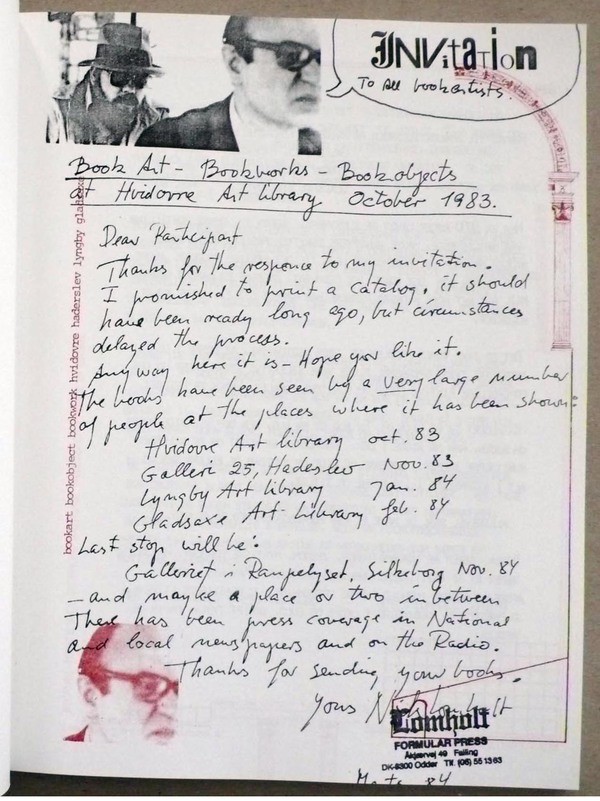 INVitaTIon
To all bookartists.
Book Art - Bookworks - Bookobjects
at Hvidovre Art library October 1983.
Dear Participant
Thanks for the responce to my invitation.
I promished to print a catalog. it should
have been ready long ago, but circumstances
delayed the process.
Anyway here it is - Hope you like it.
The books have been seen by a very large number
of people at the places where it has been shown:
Hvidovre Art library oct. 83
Galleri 25, Hadeslev Nov. 83
Lyngby Art library Jan. 84
Gladsaxe Art Library feb. 84
Last stop will be:
Galleriet i Rampelyset, Silkeborg Nov. 84
- and maybe a place or two inbetween
There has been press coverage in National
and local newspapers and on the Radio.
Thanks for sending your books.
Yours
Lomholt
FORMULAR PRESS
Åkjærvej 49 Falling
DK-8300 Odder Tlf. (06) 55 13 63
84
bookart bookobject bookwork hvidovre haderslev lyngby gladsaxe